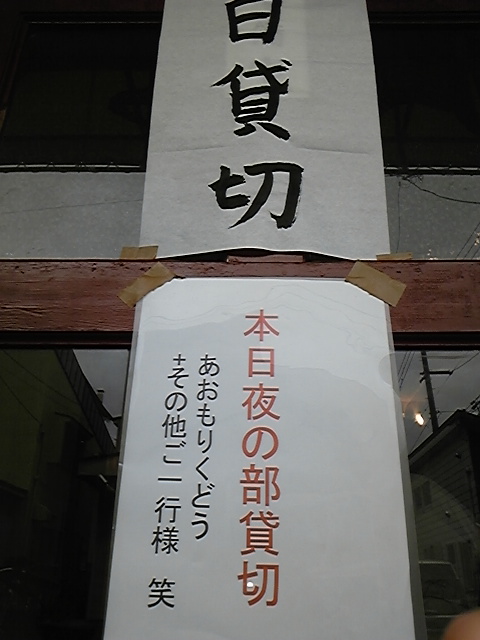 日貸切
本日夜の部貸切
あおもりくどう
+その他ご一行様 笑